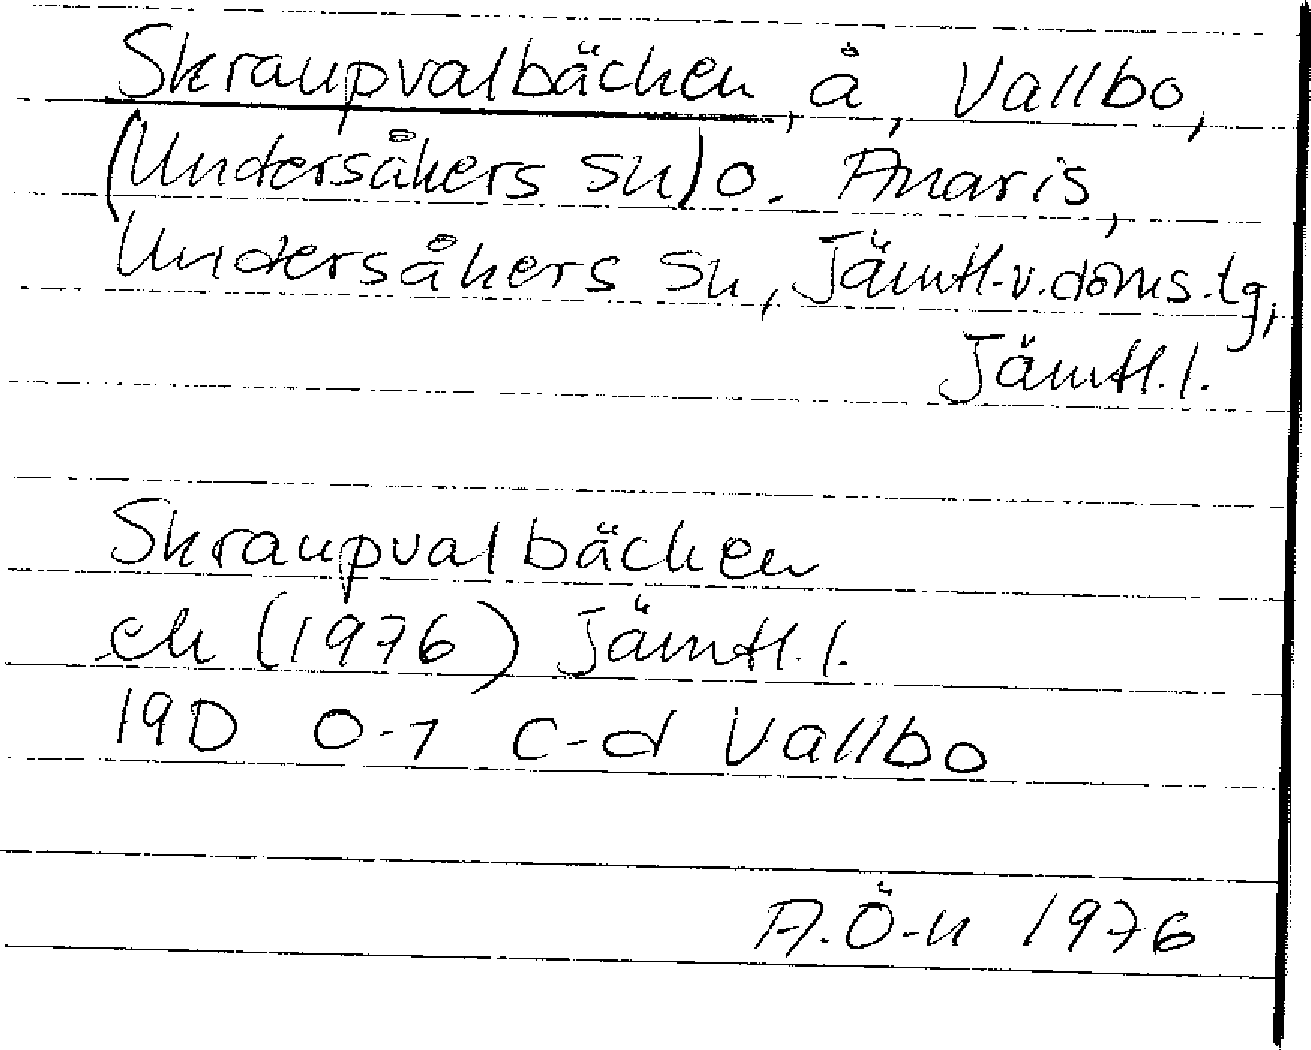 Skraupvalbäcken, å, Vallbo,
(Undersåkers sn) o. Anaris,
Undersåkers sn, Jämtl.v.doms.lg,
Jämtl.l.
Skraupvalbäcken
ek (1976) Jämtl.l.
19D 0-1 c-d Vallbo
A.Ö-n 1976